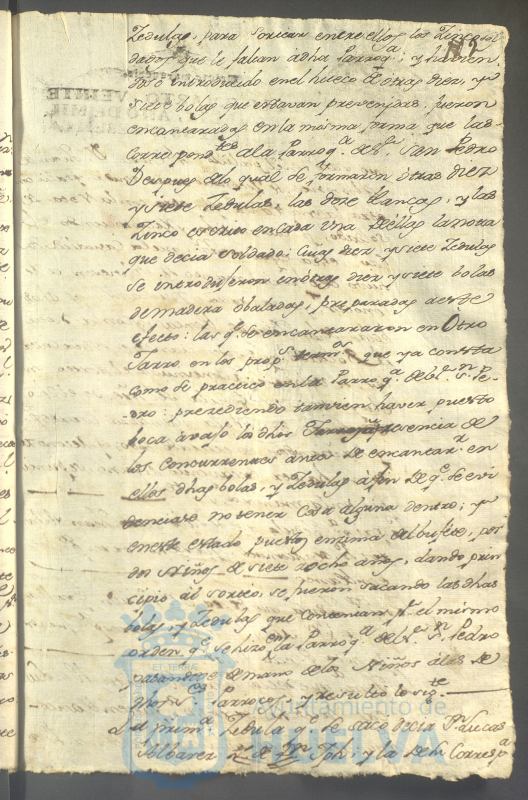 Zedulas, para sortear entre ellos los Zinco sol
dados que le faltan a dha Parroq.a; y havien
dose introducido en el hueco de otras diez, y
siete bolas que estavan prevenidas, fueron
encantaradas en la misma forma que las
correspond.tes a la Parroq.a de S.r San Pedro
Despues de lo qual se formaron otras diez
y siete Zedulas, las doze blancas, y las
Zinco escrito en cada una de ellas la nota
que decia soldado: Cuias diez, y siete Zedulas
se introdujeron en otras diez y siete bolas
de madera obaladas, preparadas a este
efecto: las q.e se encantararon en Otro
Jarro, en los prop.s term.s que ya consta
como se practicó en la Parroq.a de S.r S.n Pe
dro: precediendo tamvien haver puesto
boca avajo los dhos Jarros, presencia de
los concurrentes antes de encantarar en
ellos dhas bolas, y Zedulas a fin de q.e se evi
denciase no tener cosa alguna dentro; y
en este estado puestos enzima del bufete, por
dos Niños de siete a ocho años, dando prin
cipio al sorteo, se fueron sacando las dhas
bolas, y Zedulas que contenian p.r el mismo
orden q.e se hizo en la Parroq.a de S.r S.n Pedro
pasandose de mano de los Niños a las de
Parrocos, y resultó lo sig.te
A la prim.a Zedula q.e se sacó decia Lucas
de Jph; y la de la Corresp.a
Ayuntamiento de
HUELVA